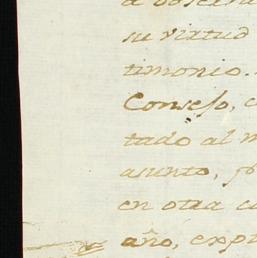 su virtud
timonio.
Consejo, c
tado al m
asunto,
en otra c
año, exp